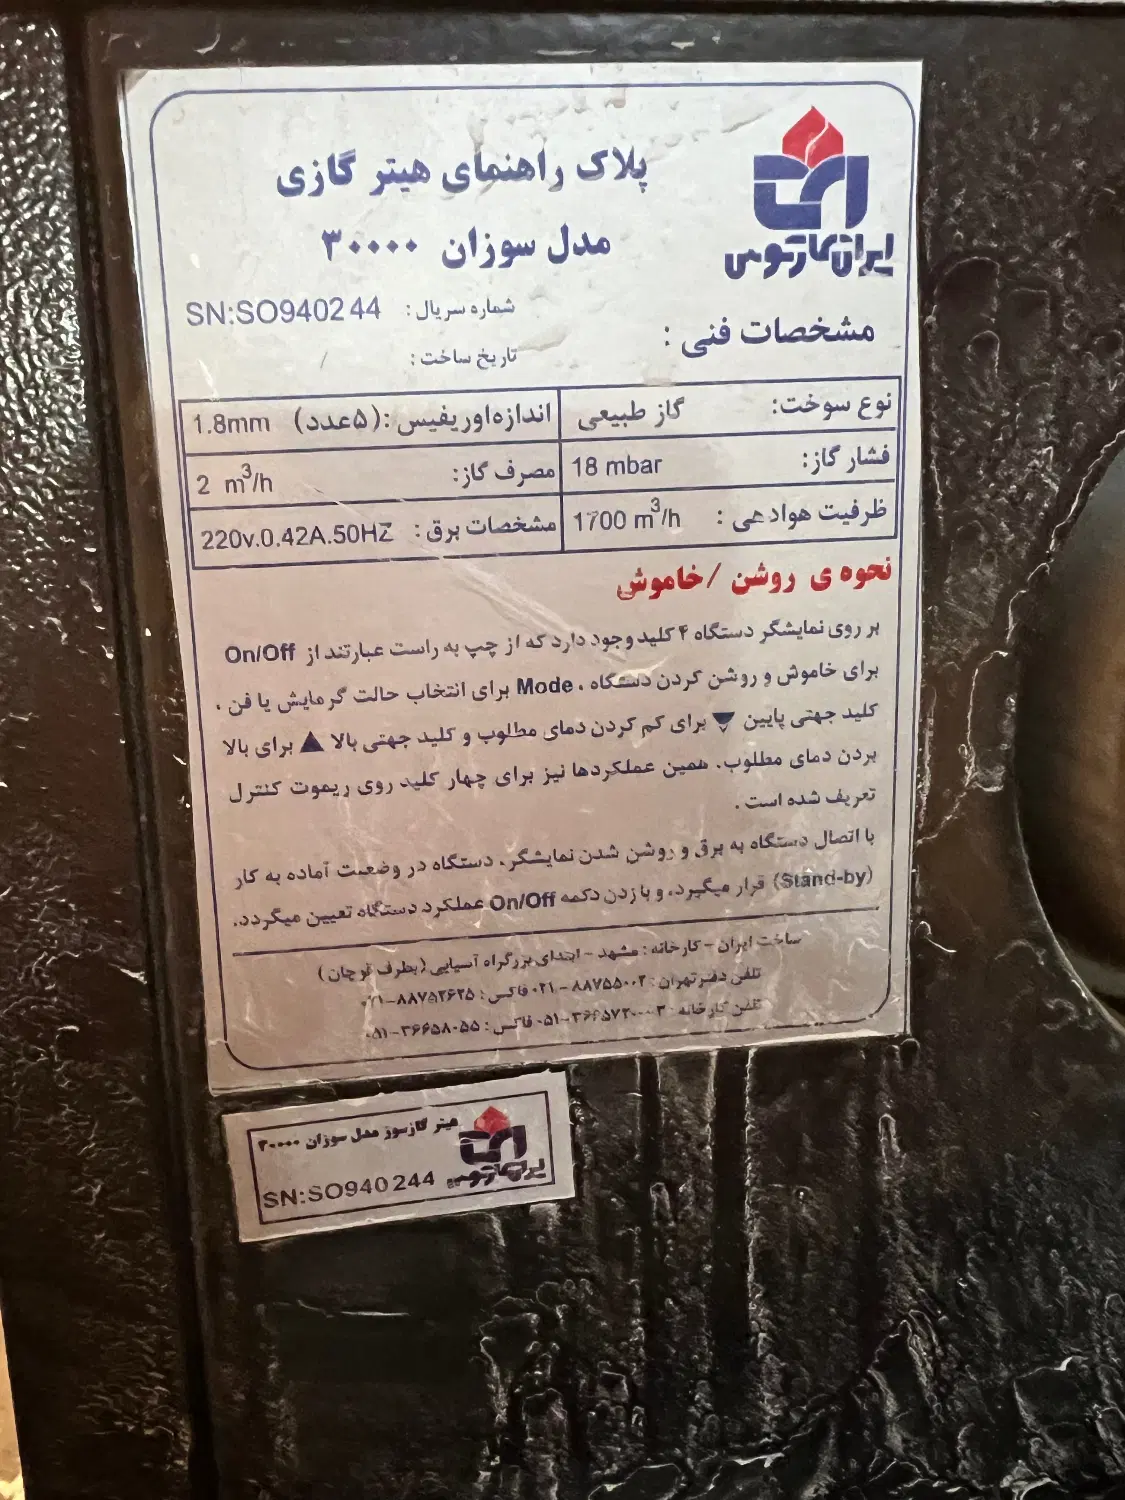 ایران کارتوس
پلاک راهنمای هیتر گازی
مدل سوزان ۳۰۰۰۰
شماره سریال: SN:SO940244
مشخصات فنی:
تاریخ ساخت: /
نوع سوخت: گاز طبیعی اندازه اوریفیس: (۵عدد) 1.8mm
فشار گاز: 18 mbar مصرف گاز: 2 m³/h
ظرفیت هوادهی: 1700 m³/h مشخصات برق: 220v.0.42A.50HZ
نحوه ی روشن /خاموش
بر روی نمایشگر دستگاه ۴ کلید وجود دارد که از چپ به راست عبارتند از On/Off
برای خاموش و روشن کردن دستگاه ، Mode برای انتخاب حالت گرمایش یا فن ،
کلید جهتی پایین ▼ برای کم کردن دمای مطلوب و کلید جهتی بالا ▲ برای بالا
بردن دمای مطلوب. همین عملکردها نیز برای چهار کلید روی ریموت کنترل
تعریف شده است .
با اتصال دستگاه به برق و روشن شدن نمایشگر، دستگاه در وضعیت آماده به کار
(Stand-by) قرار میگیرد، و با زدن دکمه On/Off عملکرد دستگاه تعیین میگردد.
ساخت ایران - کارخانه : مشهد - ابتدای بزرگراه آسیایی (بطرف قوچان)
تلفن دفتر تهران: ۸۸۷۵۵۰۰۲ - ۰۲۱ فاکس: ۸۸۷۵۲۶۲۵-۰۲۱
تلفن کارخانه: فاکس: ۳۶۶۵۸۰۵۵-۰۵۱
هیتر گازسوز مدل سوزان ۳۰۰۰۰
ایران کارتوس
SN:SO940244